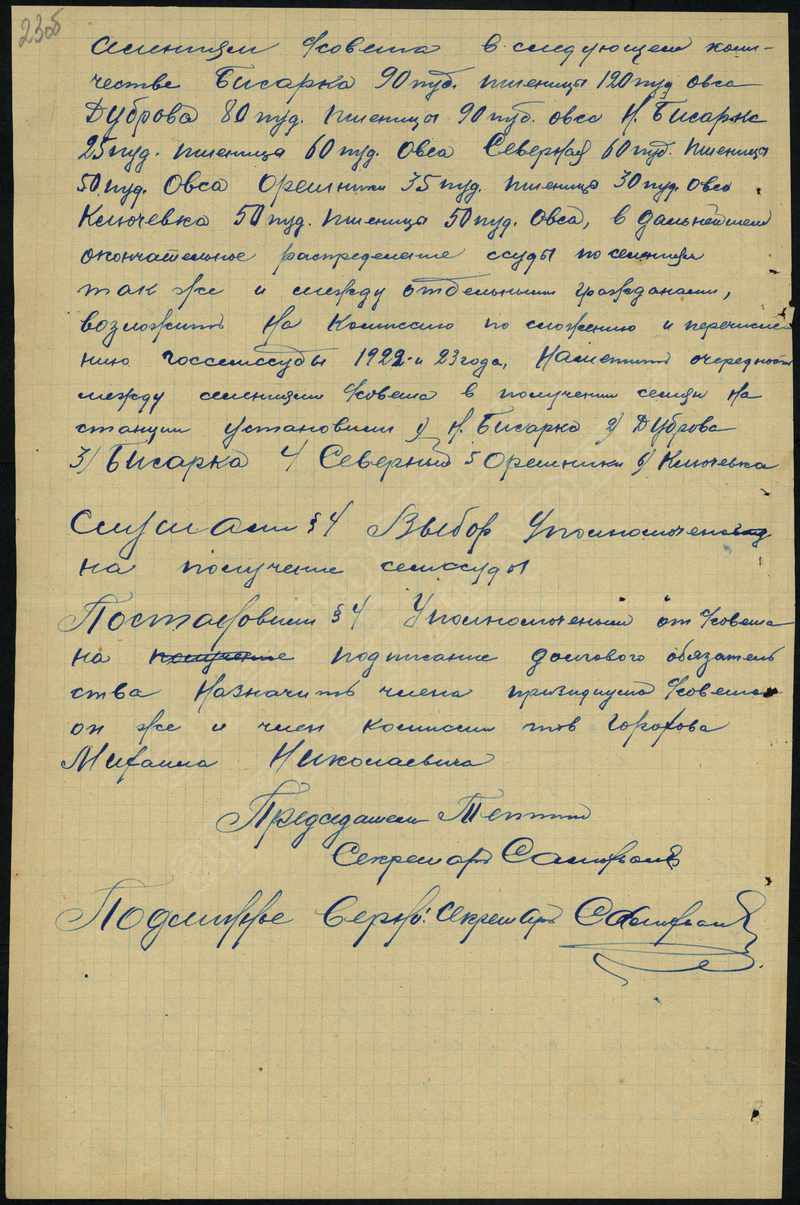 23об
селениям Совета в следующем коли-
честве Бисарка 90 пуд. пшеницы 120 пуд овса
Дуброва 80 пуд. пшеницы 90 пуд. овса Н. Бисарка
25 пуд. пшеница 60 пуд. Овса Северная 60 пуд. пшеница
50 пуд. Овса Орешники 35 пуд. пшеница 30 пуд. Овса
Ключевка 50 пуд. пшеница 50 пуд. Овса, в дальнейшем
окончательное распределение ссуды по селениям
так же и между отдельными гражданами,
возложить на Комиссию по сложению и перечисле
нию госсемссуды 1922-и 23 года, Наметить очередность
между селениями Совета в получении семян на
станции установили 1) Н. Бисарка 2) Дуброва
3) Бисарка 4) Северный 5 Орешники 6) Ключевка
Слушали § 4 Выбор Уполномоченно
на получение семссуды
Постановили § 4 Уполномоченный от Совета
на получение подписание долгового обязатель
ства Назначить члена президиума Совета
он же и член комиссии тов Горохова
Михаила Николаевича
Председатель
Секретарь
Подлинное верно: Секретарь